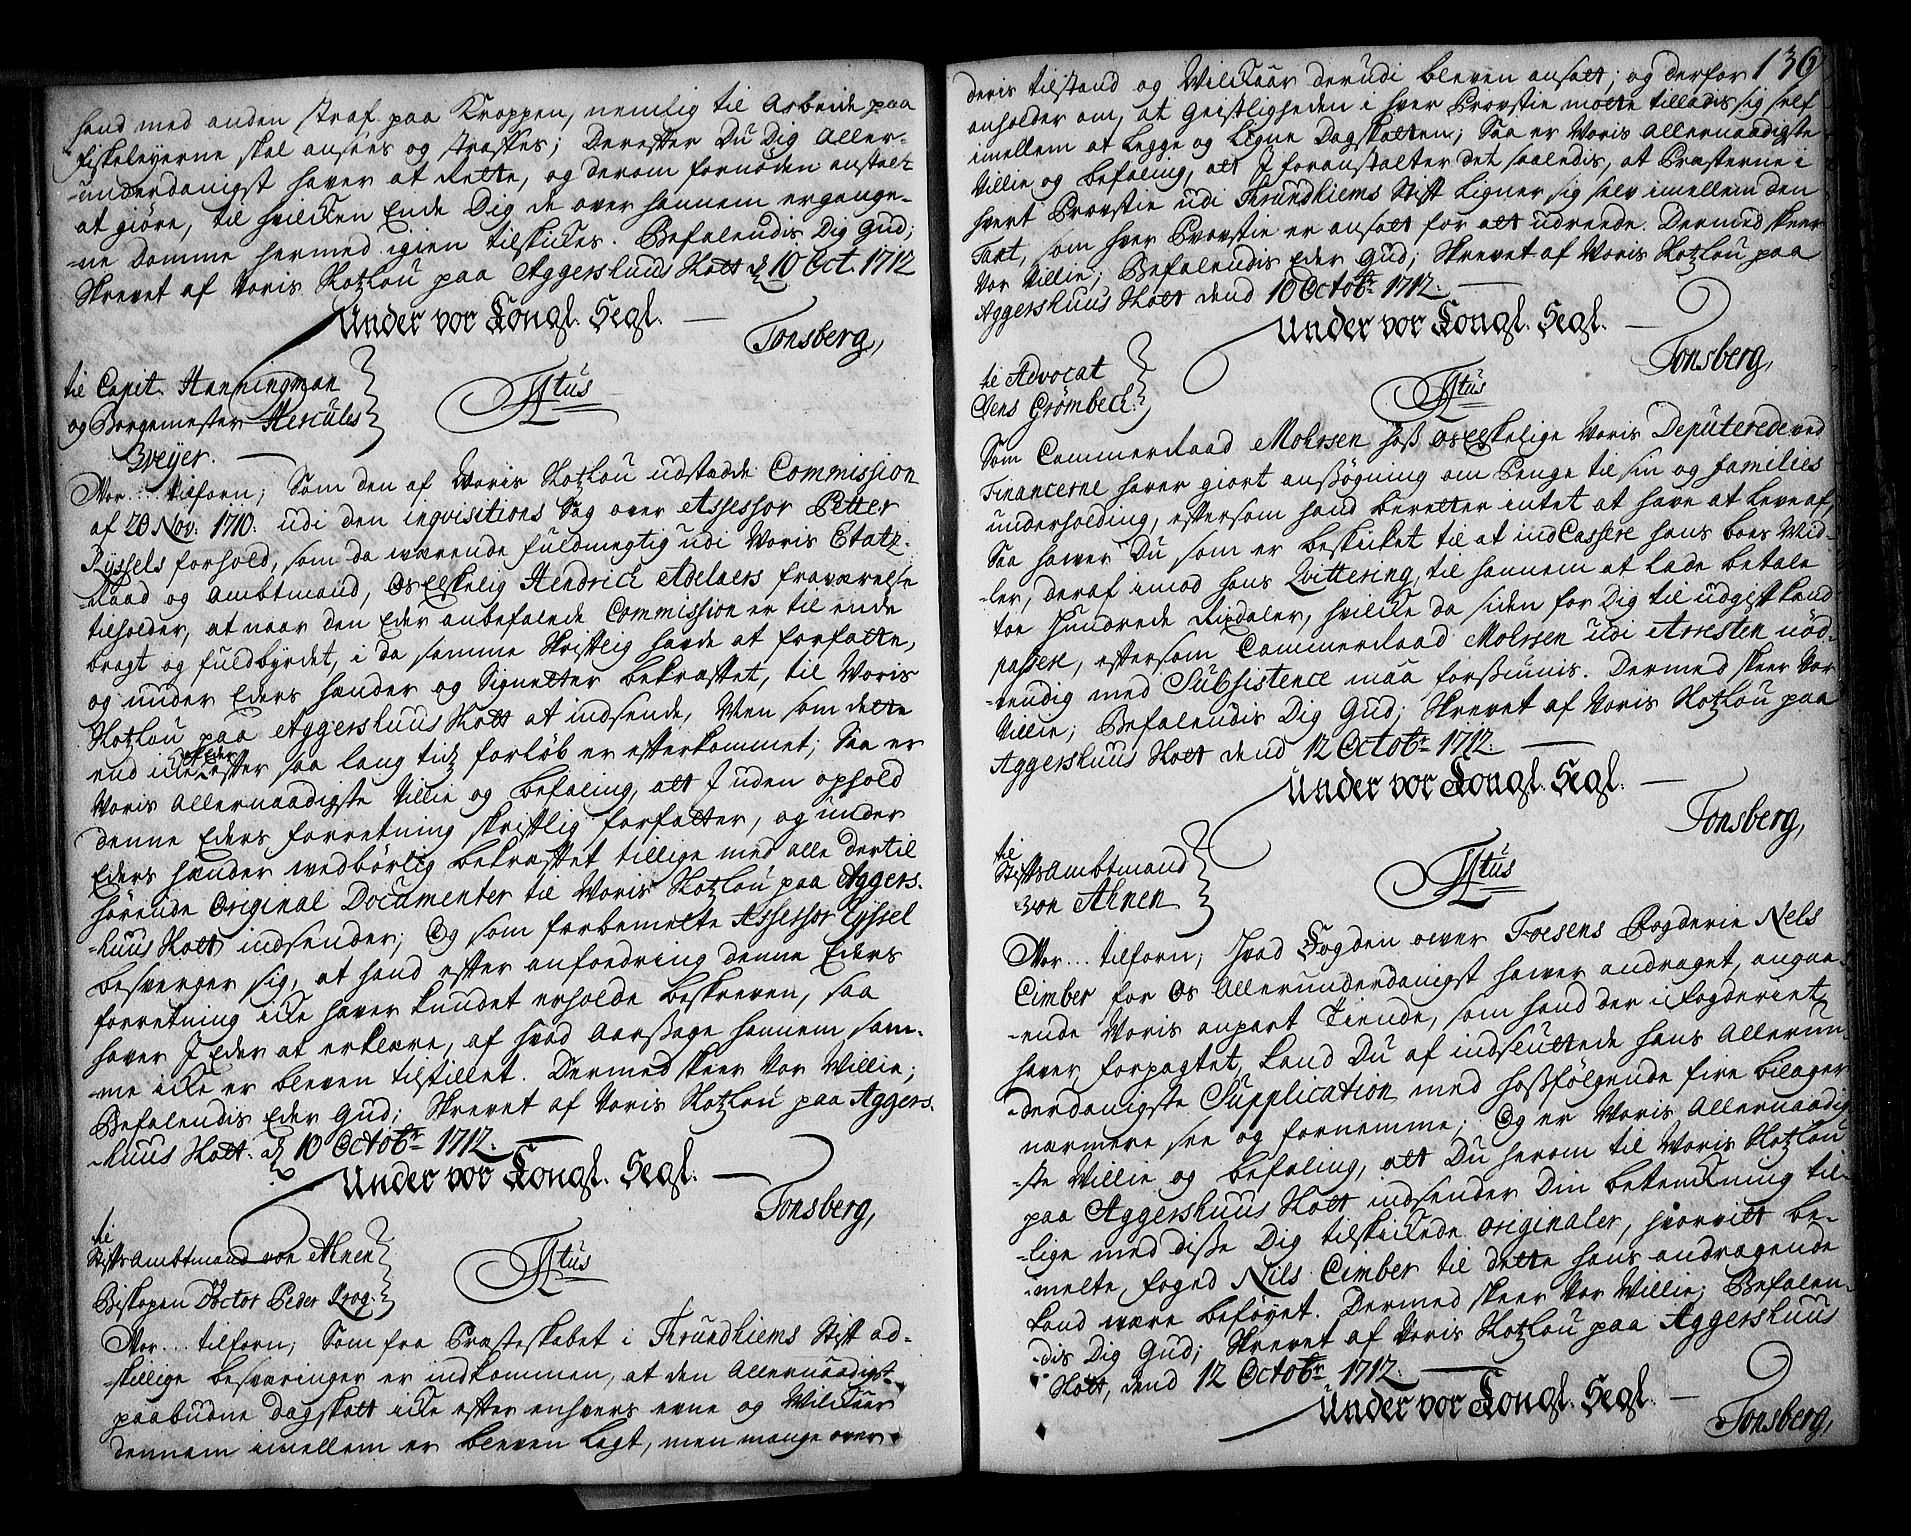 hand med anden straf paa Kroppen, nemlig til Arbeide paa
Fiskeleyerne skal ansees og straffes; Derefter Du Dig Aller-
-underdanigst haver at rette, og derom fornøden anstalt
at giøre, til hvilcken Ende Dig de over hannem ergange-
-ne Domme hermed igien tilskickes. Befalendis Dig Gud;
Skrevet af Voris Slotzlou paa Aggershuus Slott d 10 Oct. 1712
Under vor Kongl. Segl.
Tonsberg,
til Capit. Hanningman
og Borgemester Hercules
Weyer.
Titus
Vor... tilforn; Som den af Voris Slotzlou udstædde Commission
af 20 Nov: 1710. udi den inqvisitions Sag over Assessor Petter
Ryssels forhold, som da werende fuldmegtig udi Voris Etatz-
-Raad og Ambtmand, Os Elskelig Hendrich Adelaers fraværelse
tilholder, at naar den Eder anbefalede Commission er til ende
bragt og fuldbyrdet, i da samme Skriftlig hafde at forfatte,
og under Eders hænder og Signetter bekræftet, til Voris
Slotzlou paa Aggershuus Slott at indsende, Men som dette
end icke af Eder efter saa lang tidz forløb er efterkommet; Saa er
Voris Allernaadigste Villie og befaling, att I uden ophold
denne Eders forretning skriftlig forfatter, og under
Eders hænder wedbørlig bekræftet tillige med alle dertil
hørende Original Documenter til Voris Slotzlou paa Aggers-
-huus Slott indsender; Og som forbemelte Assessor Ryssel
besverger sig, at hand efter anfordring denne Eders
forretning icke haver kundet erholde beskreven, saa
haver I Eder at erklære, af hvad Aarsage hannem sam-
-me icke er bleven tilstillet. Dermed skeer Vor Villie;
Befalendis Eder Gud; Skrevet af Voris Slotzlou paa Aggers-
-huus Slott. d 10 Octobr 1712.
Under vor Kongl. Segl.
Tonsberg,
til
Stiftsambtmand von Ahnen
Biskopen Doctor Peder Krog.
Titus
Vor... tilforn; Som fra Præsteskabet i Thrundhiems Stift ad-
-skillige besværinger er indkommen, at den Allernaadigst
paabudne dagskatt icke efter enhvers evne og Wilckaar
dennem imellem er bleven lagt, men mange over
136
deris tilstand og Wilckaar derudi bleven ansatt; og derfor
anholder om, at Geistligheden i hver Provstie motte tilladis sig self
imellem at Legge og Ligne Dagskatten; Saa er Voris Allernaadigste
Villie og befaling, att I foranstalter det saaledis, at Præsterne i
hvert Provstie udi Thrundhiems Stift Ligner sig selv imellem den
Taxt, som hver Provstie er ansatt for att udreede. Dermed skeer
Vor Villie; Befalendis Eder Gud; Skrevet af Voris Slotzlou paa
Aggershuus Slott dend 10 Octobr 1712.
Under vor Kongl. Segl.
Tonsberg,
til Advocat
Jens Grømbech.
Titus
Som Cammerraad Mohrsen hoß os Elskelige Voris Deputerede ved
Financerne haver giort anßøgning om Penge til sin og families
underholding, eftersom hand beretter intet at have at Leve af,
Saa hawer Du, som er beskicket til at indCassere hans boes Mid-
-ler, deraf imod hans Qvittering, til hannem at lade betale
toe Hundrede Rixdaler, hvilcke da siden for Dig til udgift kand
passere, eftersom Cammerraad Mohrsen udi Arresten nød-
-vendig med Subsistence maa forßiunis. Dermed skeer Vor
Villie; Befalendis Dig Gud; Skrevet af Voris Slotzlou paa
Aggershuus Slott dend 12 Octobr 1712.
Under vor Kongl. Segl.
Tonsberg,
til
Stiftsambtmand
von Ahnen
Titus
Vor... tilforn; Hvad Fogden ower Foesens Fogderie Nels
Cimber for Os Allerunderdanigst hawer andraget, angaa-
-ende Voris anpart Tiende, som hand der i fogderiet
haver forpagtet, kand Du af indsluttede hans Allerun-
-derdanigste Supplication med hoßfølgende fire bilager
nærmere see og fornemme; Og er Voris Allernaadig-
-ste Villie og befaling, att Du herom til Voris Slotzlou
paa Aggershuus Slott indsender Din betenckning til-
-lige med diße Dig tilskickede originaler, hvorvitt be-
-melte foged Nils Cimber til dette hans andragende
kand være beføyet. Dermed skeer Vor Villie; Befalen-
-dis Dig Gud; Skrevet af Voris Slotzlou paa Aggershuus
Slott, dend 12 Octobr 1712.
Under vor Kongl. Segl.
Tonsberg,